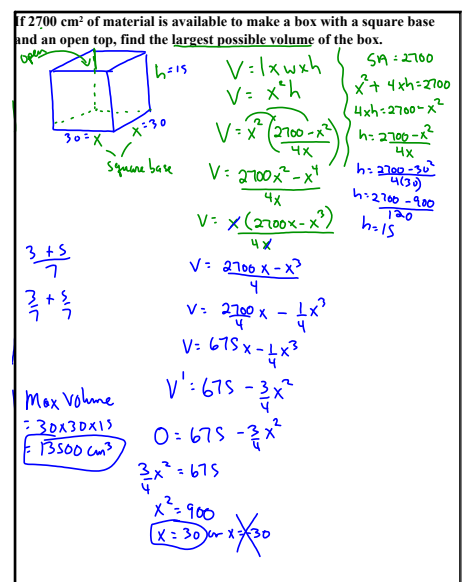 If 2700 cm² of material is available to make a box with a square base
and an open top, find the largest possible volume of the box.
open
h=15
30 = x
x=30
square base
V = l x w x h
V = x²h
V = x²(2700-x²/4x)
V = 2700x² - x⁴/4x
V = x(2700x - x³)/4x
V = 2700x - x³/4
V = 2700/4 x - 1/4 x³
V = 675x - 1/4 x³
V' = 675 - 3/4 x²
0 = 675 - 3/4 x²
3/4 x² = 675
x² = 900
x = 30 or x = -30
SA = 2700
x² + 4xh = 2700
4xh = 2700 - x²
h = 2700 - x²/4x
h = 2700 - 30²/4(30)
h = 2700 - 900/120
h = 15
3 + 5/7
3/7 + 5/7
Max Volume
= 30x30x15
= 13500 cm³